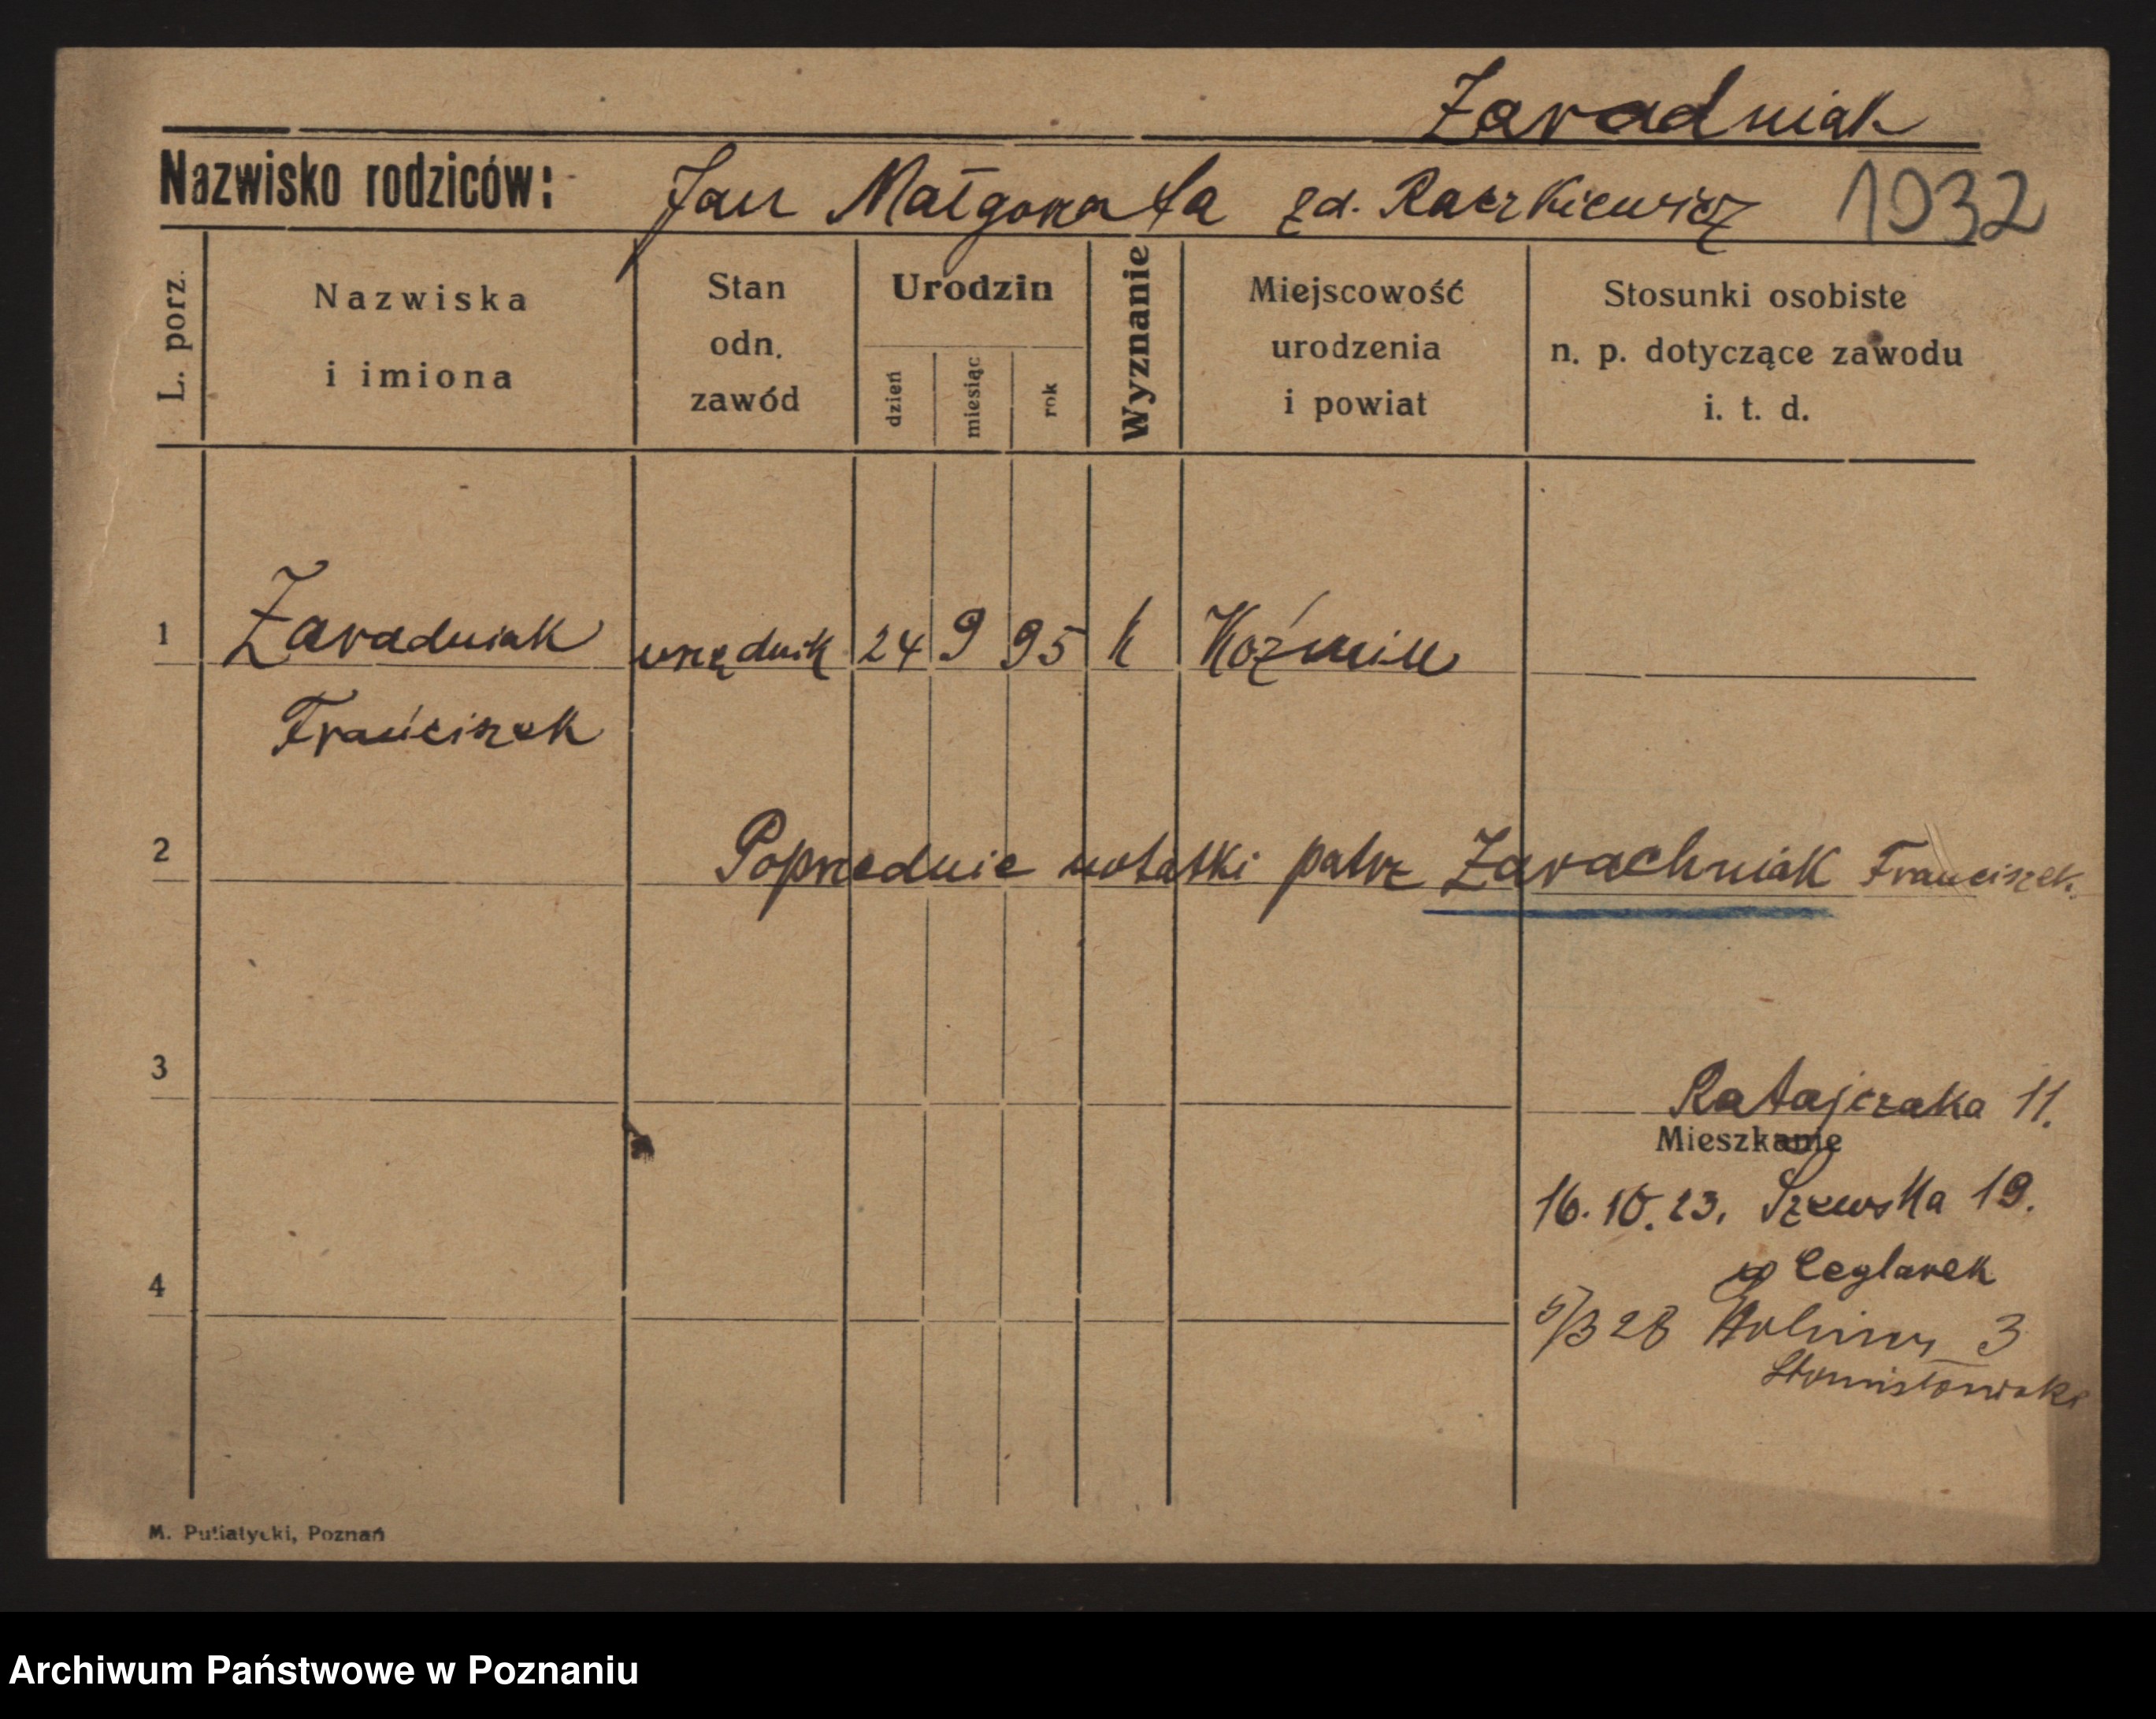 Zaradniak
Nazwisko rodziców: Jan Małgorzata zd. Raczkiewicz 1932
L. porz. Nazwiska i imiona Stan odn. zawód Urodzin dzień miesiąc rok Wyznanie Miejscowość urodzenia i powiat Stosunki osobiste n. p. dotyczące zawodu i. t. d.
1 Zaradniak urzędnik 24 9 95 k Koźmin
Franciszek
2 Poprzednie notatki patrz Zarachniak Franciszek.
3
Ratajczaka 11.
Mieszkanie
16.10.23. Szewska 19.
Ceglarek
4
5/3 28 3
M. Putiatycki, Poznań
Archiwum Państwowe w Poznaniu